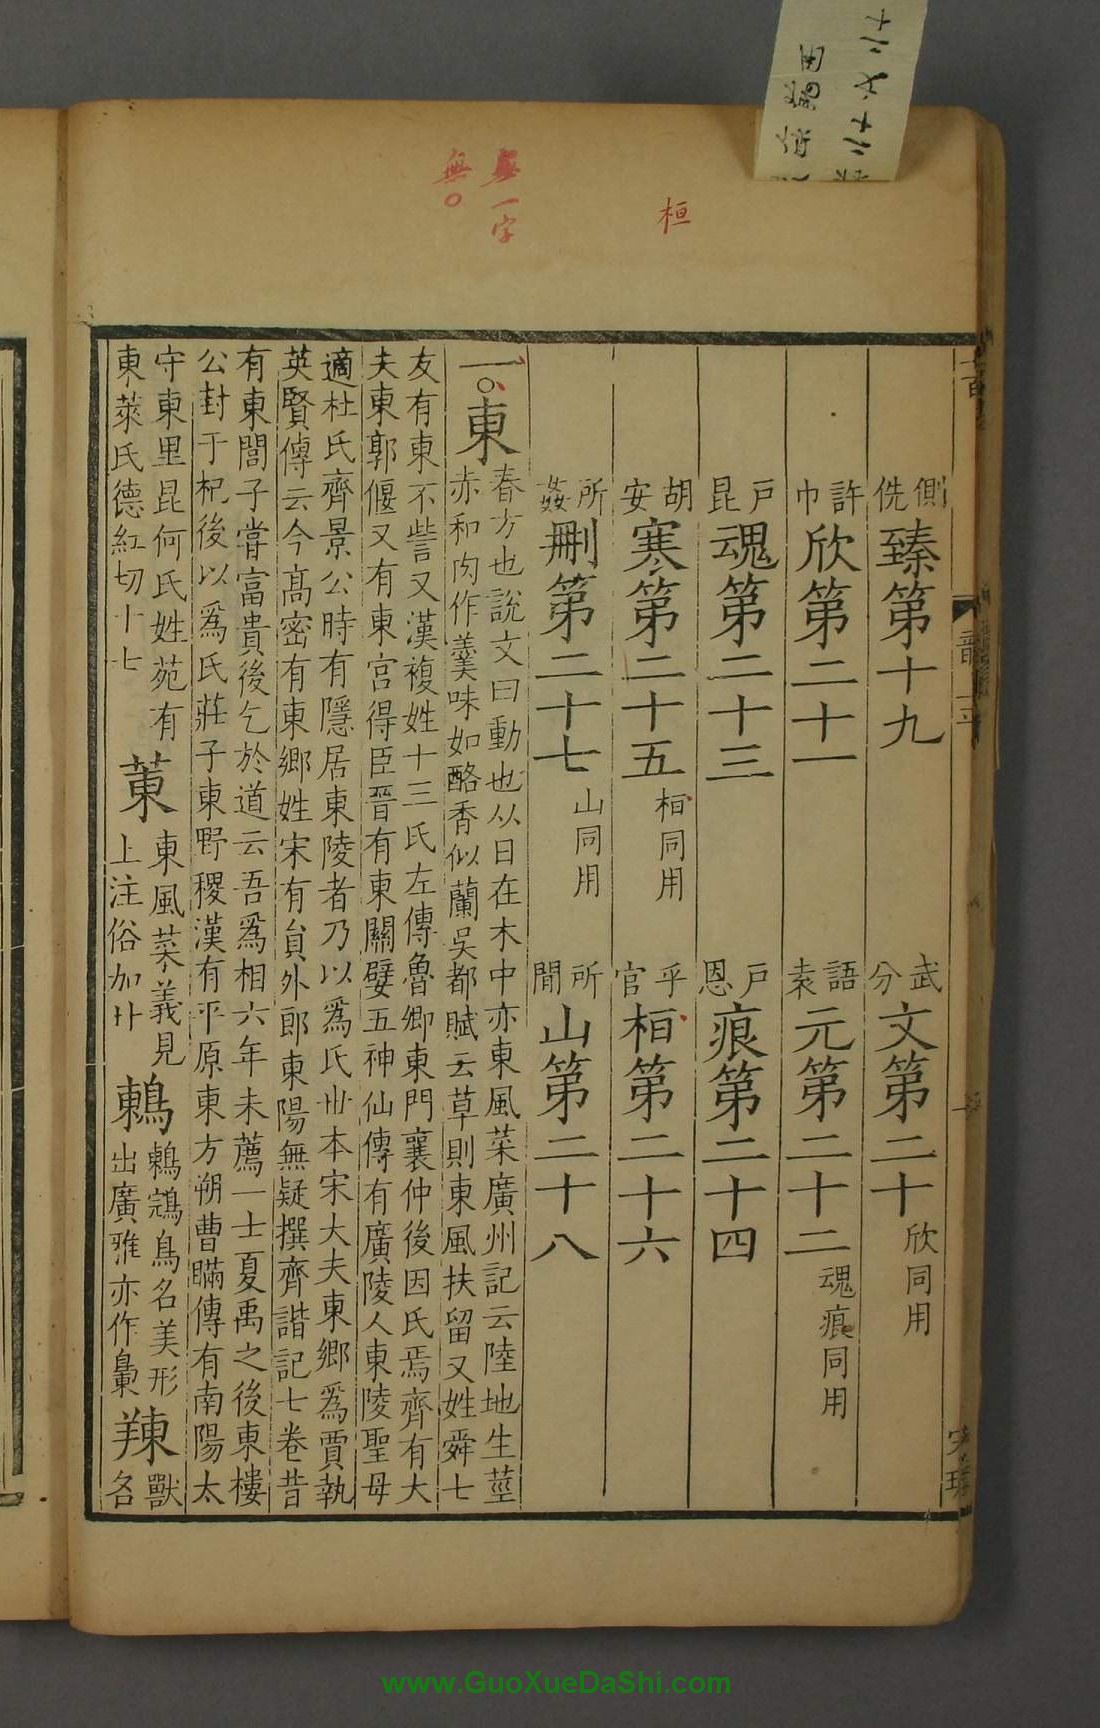 無一字
無○
桓
側詵臻第十九 武分文第二十欣同用
許巾欣第二十一 語袁元第二十二魂痕同用
戸昆魂第二十三 戸恩痕第二十四
胡安寒第二十五桓同用 乎官桓第二十六
所姦刪第二十七山同用 所閒山第二十八
一○東
春方也說文曰動也从日在木中亦東風菜廣州記云陸地生莖
赤和肉作羹味如酪香似蘭吳都賦云草則東風扶留又姓舜七
友有東不訾又漢複姓十三氏左傳魯卿東門襄仲後因氏焉齊有大
夫東郭偃又有東宮得臣晉有東關嬖五神仙傳有廣陵人東陵聖母
適杜氏齊景公時有隱居東陵者乃以爲氏世本宋大夫東鄉爲賈執
英賢傳云今高密有東鄉姓宋有貟外郎東陽無疑撰齊諧記七卷昔
有東閭子嘗富貴後乞於道云吾爲相六年未薦一士夏禹之後東樓
公封于杞後以爲氏莊子東野稷漢有平原東方朔曹瞞傳有南陽太
守東里昆何氏姓苑有
東萊氏德紅切十七
菄
東風菜義見
上注俗加艹
鶇
鶇鵍鳥名美形
出廣雅亦作𪂝
䍶
獸
名
www.GuoXueDaShi.com